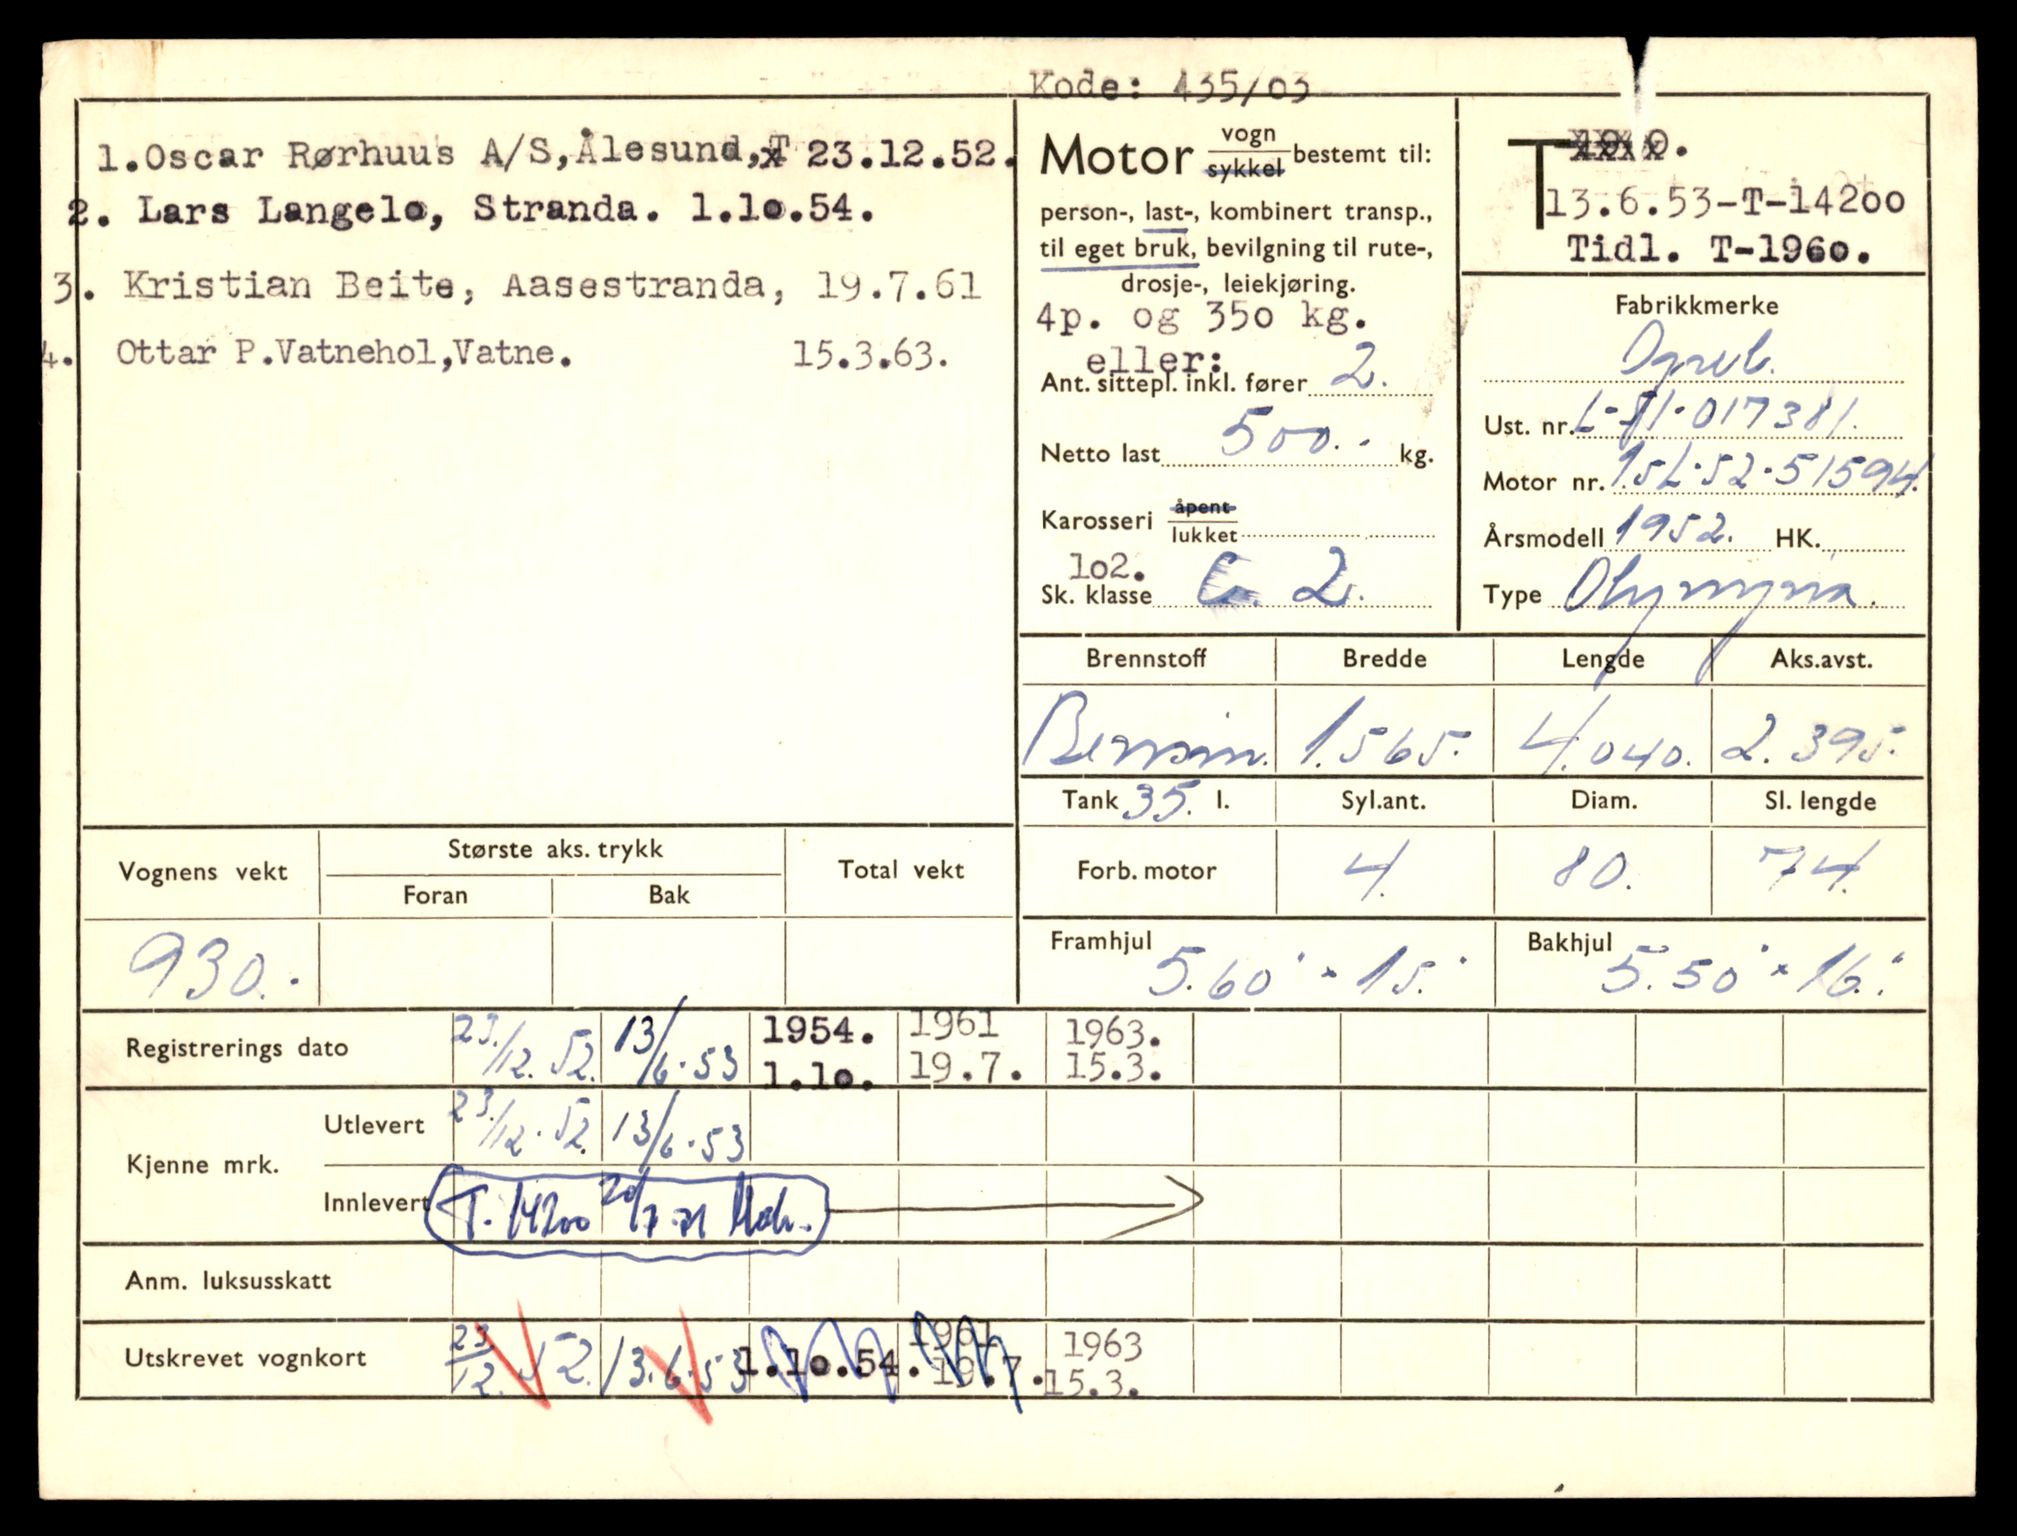 Kode: 435/03
1.Oscar Rørhuus A/S,Ålesund, 23.12.52.
2. Lars Langelo, Stranda. 1.1o.54.
3. Kristian Beite, Aasestranda, 19.7.61
4. Ottar P.Vatnehol,Vatne. 15.3.63.
Motor vogn / sykkel bestemt til:
person-, last-, kombinert transp.,
til eget bruk, bevilgning til rute-,
drosje-, leiekjøring.
4p. og 350 kg.
eller:
Ant. sittepl. inkl. fører 2.
Netto last 500.- kg.
Karosseri åpent / lukket
1o2.
Sk. klasse 2.
T
13.6.53-T-142oo
Tidl. T-196o.
Fabrikkmerke
Opel.
Ust. nr. L-51-017381.
Motor nr. 1.5L-52-51594.
Årsmodell 1952. HK.
Type Olympia.
Brennstoff Bredde Lengde Aks.avst.
Bensin. 1.565. 4.040. 2.395.
Tank 35. l. Syl.ant. Diam. Sl. lengde
Forb. motor 4. 80. 74.
Framhjul 5.60" x 15." Bakhjul 5.50" x 16."
Vognens vekt Største aks. trykk Total vekt
Foran Bak
930.-
Registrerings dato 23./12. 52. 13/6-53 1954. 1961 1963.
1.1o. 19.7. 15.3.
Kjenne mrk.
Utlevert 23./12. 52. 13/6-53
Innlevert T-14200 20/7-71
Anm. luksusskatt
Utskrevet vognkort 23/12. 52. 13.6.53 1.1o.54. 1961 1963
19.7. 15.3.